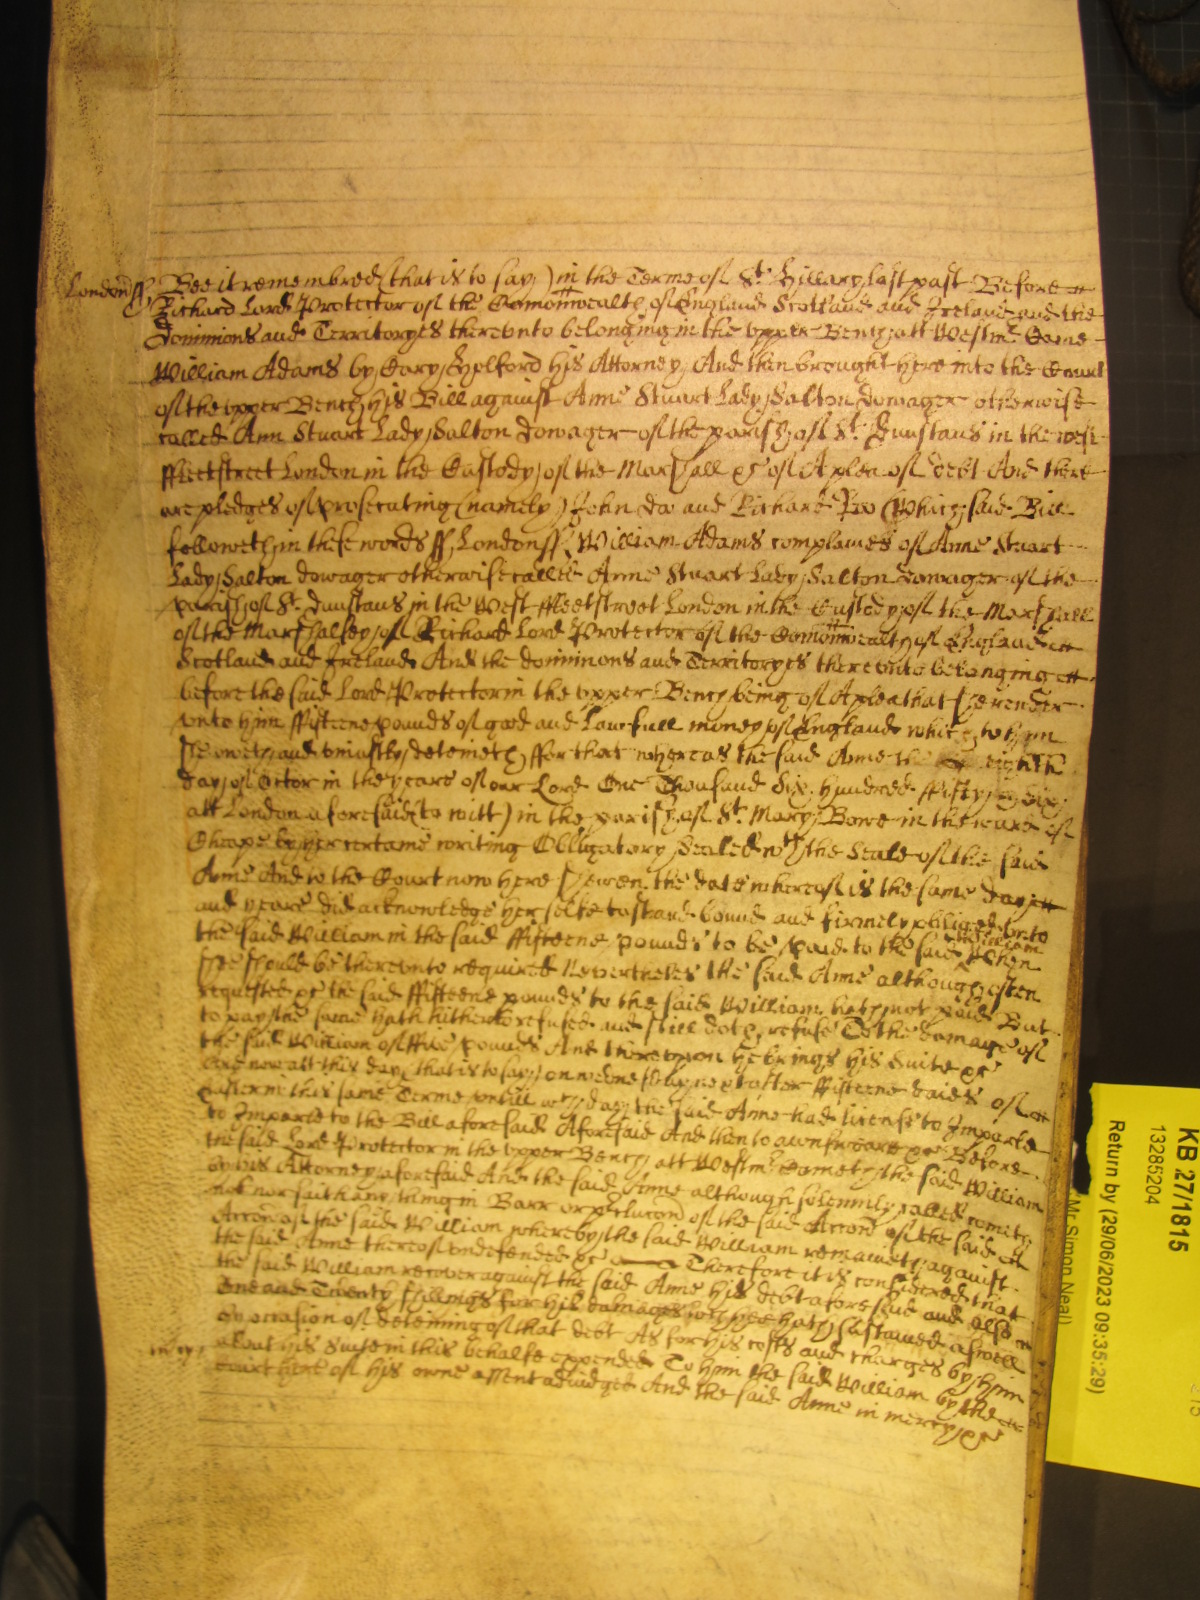 London ss Bee it remembred (that is to say) in the Terme of St. Hillary last past Before
Richard Lord Protector of the Comonwealth of England Scotland and Ireland and the
dominions and Territoryes thereunto belonging in the upper Bench att Westmr Came
William Adams by Holford his Attorney And then brought here into the Court
of the upper Bench his Bill against Anne Stuart Lady Salton dowager otherwise
called Ann Stuart Lady Salton dowager of the parish of St. Dunstans in the west
ffleetstreet London in the Custody of the Marshall &c of A plea of debt And there
are pledges of prosecuting (namely) John doo and Richard Roo Which said Bill
followeth in these words ss London ss William Adams complaines of Anne Stuart
Lady Salton dowager otherwise called Anne Stuart Lady Salton dowager of the
parish of St. Dunstans in the West ffleetstreet London in the Custody of the Marshall
of the Marshalsey of Richard Lord Protector of the Comonwealth of England
Scotland and Ireland And the dominions and Territoryes thereunto belonging
before the said Lord Protector in the upper Bench being of A plea that shee render
unto him ffifteene pounds of good and Lawfull money of England which to him
shee oweth and uniustly deteineth ffor that whereas the said Anne the eighth
day of Octor in the yeare of our Lord One Thousand Six hundred ffifty Six
att London aforesaid (to witt) in the parish of St. Mary Bowe in the ward of
Cheape by her certaine writing Obligatory Sealed wth the Seale of the said
Anne And to the Court now here shewen the date whereof is the same day
and yeare did acknowledge her selfe to stand bound and firmely obliged unto
the said William in the said ffifteene pounds to be paid to the said William When
shee should be thereunto required Neverthelesse the said Anne although often
requested &c the said ffifteene pounds to the said William hath not paid But
to pay the same hath hitherto refused and still doth refuse To the damage of
the said William of ffive pounds And thereupon he brings his Suite &c
And now att this day (that is to say) on wednesday next after ffifteene daies of
Easter in this same Terme untill wch day the said Anne had license to Imparle
to Imparle to the Bill aforesaid Aforesaid And then to awnsweare &c Before
the said Lord Protector in the upper Bench att Westmr Cometh the said William
by his Attorney aforesaid And the said Anne although solemnly called cometh
not nor saith any thing in Barr or of the said Accon of the said
Accon of the said William whereby the said William remaineth against
the said Anne thereof undefended &c Therefore it is considered that
the said William recover against the said Anne his debt aforesaid and also
One and Twenty shillings for his damages wch hee hath sustained aswell
by occasion of deteining of that debt As for his costs and charges by him
about his Suite in this behalfe expended To him the said William by the
Court here of his owne assent adiudged And the said Anne in mercy &c
KB 27/1815
13285204
Return by (29/06/2023 09:35:29)
Mr Simon Neal